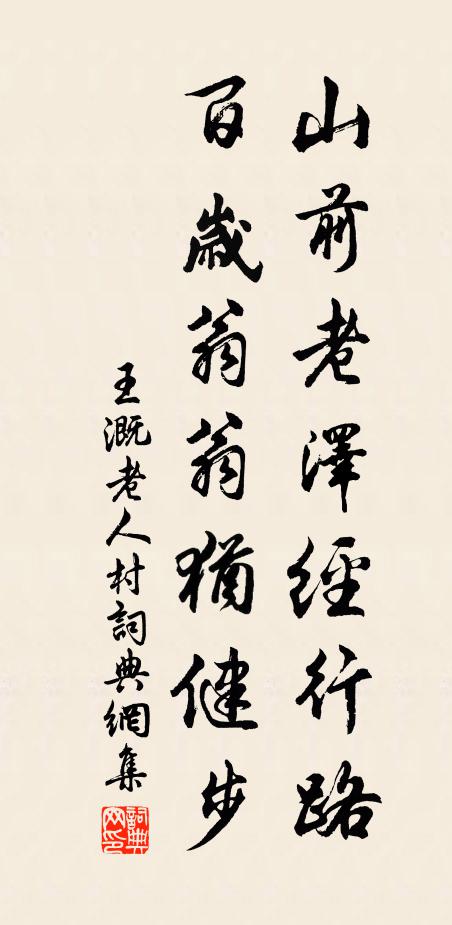 山前老澤經行路
百歲翁翁猶健步
王溉老人村詞典網集
詞典網印